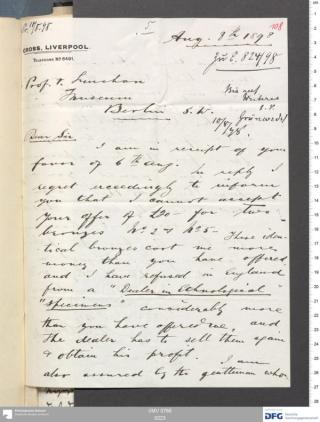 5
108
Aug. 8th 1898
CROSS, LIVERPOOL.
TELEPHONE NO 6491.
Zu E. 824/98
Prof. v. Luschan
Museum
Berlin S.W.
Bis auf
Weiteres
Grünwedel
10/8/98.
Dear Sir
I am in receipt of your
favor of 6th Aug. In reply I
regret exceedingly to inform
you that I cannot accept
your offer of £20- for two
bronzes No 2 & No 5- These iden-
tical bronzes cost me more
money than you have offered
and I have refused in England
from a "Dealer in Ethnological
"Specimens" considerably more
than you have offered me, and
the dealer has to sell them again
& obtain his profit. I am
also assured by the gentleman who
SMV 0766
0223
DFG